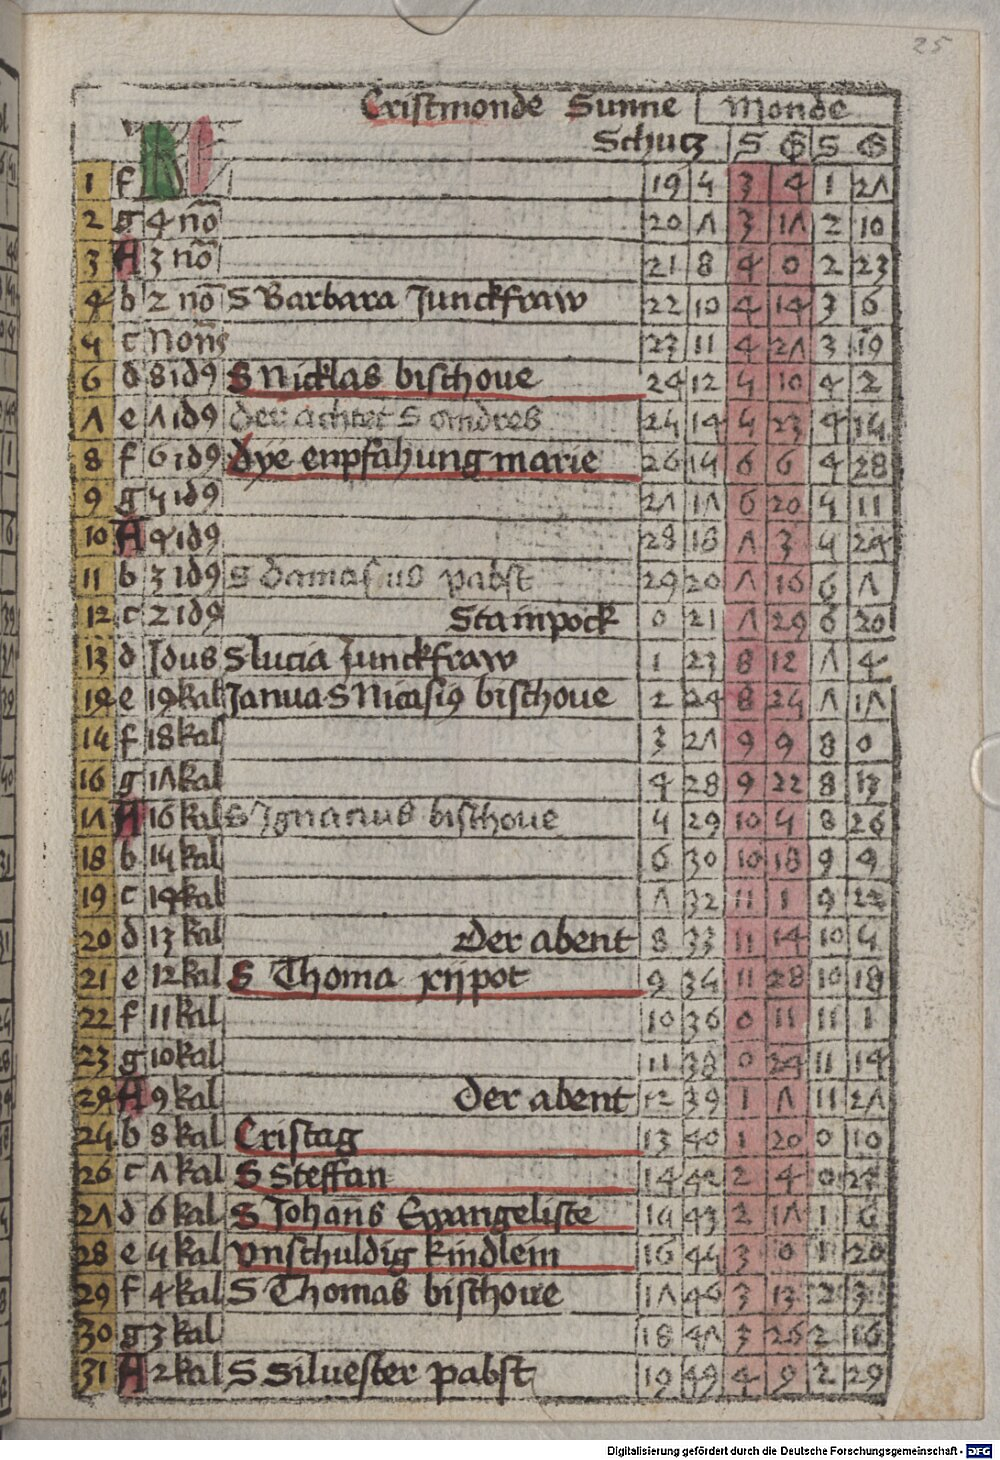 25
Cristmonde Sunne Monde
Schutz S G S G
1 f 19 5 3 4 1 27
2 g 4 nō 20 7 3 17 2 10
3 A 3 nō 21 8 4 0 2 23
4 b 2 nō S Barbara Junckfraw 22 10 4 14 3 6
5 c Nonꝫ 23 11 4 27 3 19
6 d 8 id9 S Nicklas bischoue 24 12 5 10 4 2
7 e 7 id9 der achtet S andres 25 14 5 23 4 15
8 f 6 id9 dye enpfahung marie 26 15 6 6 4 28
9 g 5 id9 27 17 6 20 5 11
10 A 4 id9 28 18 7 3 5 24
11 b 3 id9 S damasius pabst 29 20 7 16 6 7
12 c 2 id9 Stainpock 0 21 7 29 6 20
13 d Idus S lucia Junckfraw 1 23 8 12 7 4
14 e 19 kal Janua S Nicasi9 bischoue 2 24 8 25 7 17
15 f 18 kal 3 27 9 9 8 0
16 g 17 kal 4 28 9 22 8 13
17 A 16 kal S Ignatius bischoue 5 29 10 5 8 26
18 b 15 kal 6 30 10 18 9 9
19 c 14 kal 7 32 11 1 9 22
20 d 13 kal Der abent 8 33 11 15 10 5
21 e 12 kal S Thoma xijpot 9 35 11 28 10 18
22 f 11 kal 10 36 0 11 11 1
23 g 10 kal 11 38 0 24 11 14
24 A 9 kal Der abent 12 39 1 7 11 27
25 b 8 kal Cristag 13 40 1 20 0 10
26 c 7 kal S Steffan 14 42 2 4 0 23
27 d 6 kal S Johans Ewangeliste 15 43 2 17 1 6
28 e 5 kal Vnschuldig kindlein 16 45 3 0 1 20
29 f 4 kal S Thomas bischoue 17 46 3 13 2 3
30 g 3 kal 18 47 3 26 2 16
31 A 2 kal S Siluester pabst 19 49 4 9 2 29
Digitalisierung gefördert durch die Deutsche Forschungsgemeinschaft - DFG